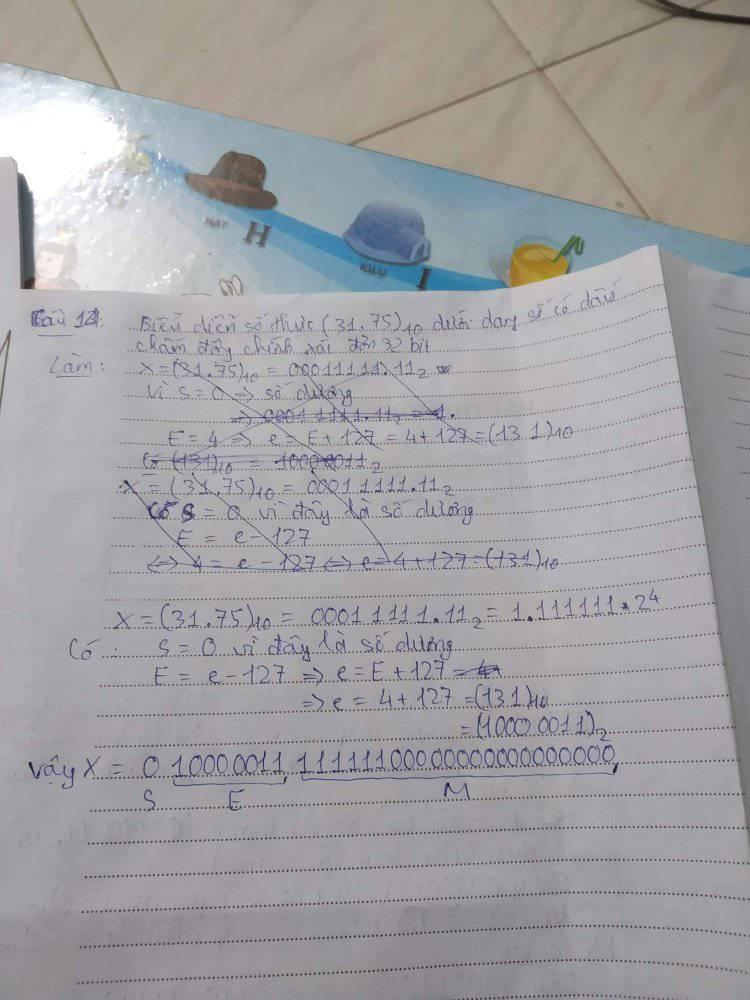 HAT H
IGLU I
Câu 14: Biểu diễn số thực (31.75)10 dưới dạng số có dấu
chấm động chính xác đơn 32 bit
Làm: X = (31.75)10 = 00011111.112
Vì S = 0 => số dương
=> 00011111.112 = 1.
E = 4 => e = E + 127 = 4 + 127 = (131)10
(131)10 = 100000112
X = (31.75)10 = 00011111.112
Có S = 0 vì đây là số dương
E = e - 127
<=> 4 = e - 127 <=> e = 4 + 127 = (131)10
X = (31.75)10 = 00011111.112 = 1.111111 * 24
Có: S = 0 vì đây là số dương
E = e - 127 => e = E + 127 = 4
=> e = 4 + 127 = (131)10
= (10000011)2
Vậy X = 0 10000011 11111100000000000000000
S E M